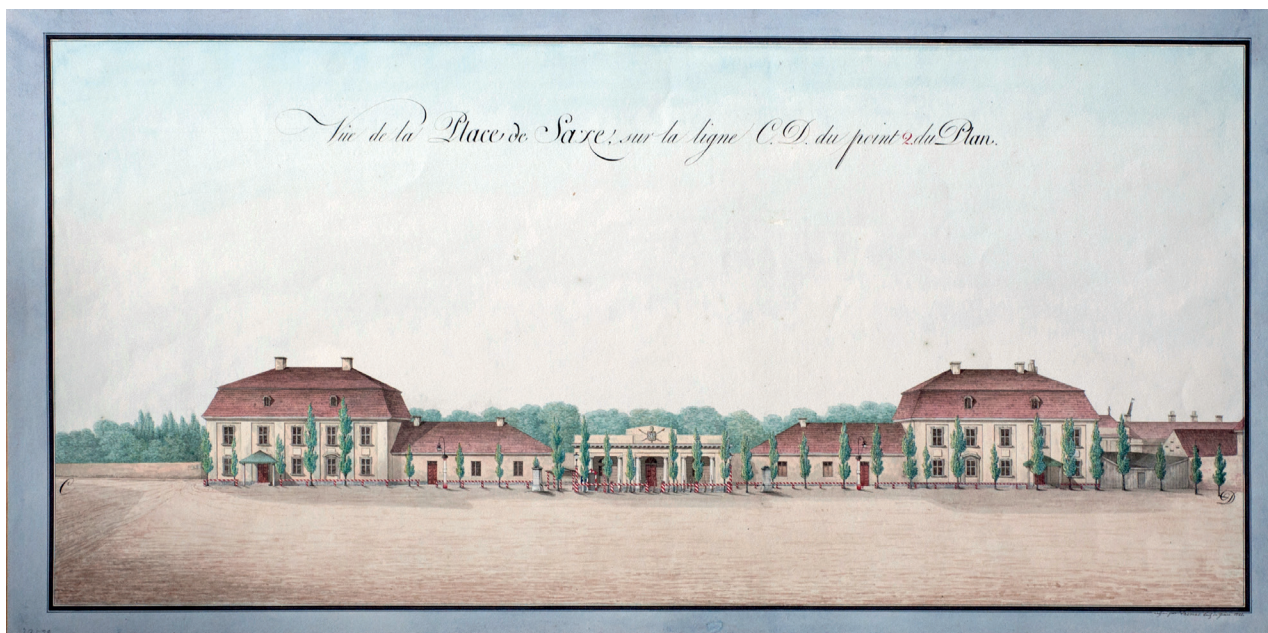 Vüe de la Place de Saxe, sur la ligne C. D. du point 2 du Plan.
C
D